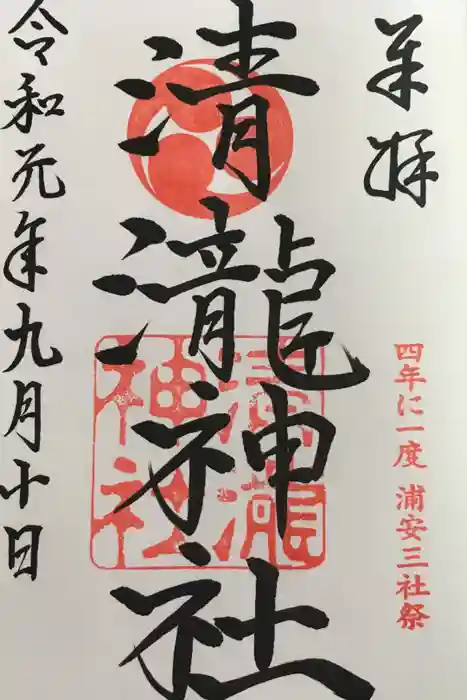 奉拝
四年に一度 浦安三社祭
清瀧神社
清瀧神社
令和元年九月十日